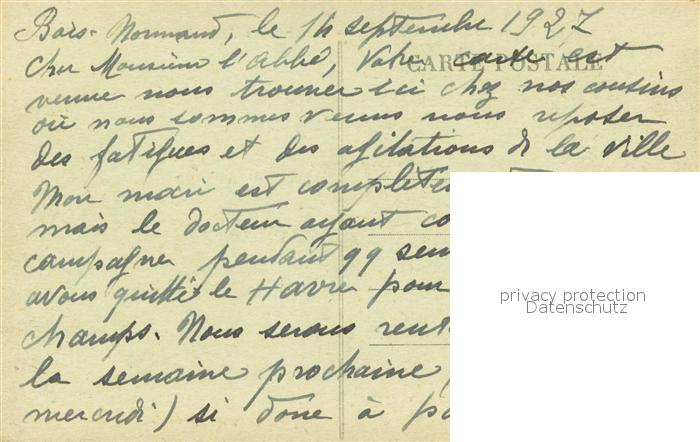 Bois-Normand, le 14 septembre 1927
CARTE POSTALE
Cher Monsieur l'abbé, Votre carte est
venue nous trouver ici chez nos cousins
où nous sommes venus nous reposer
des fatigues et des agitations de la ville
Mon mari est complète
mais le docteur ayant co
campagne pendant qq sem
avons quitté le Havre pour
champs. Nous serons rent
la semaine prochaine
mercredi) si donc à pa
privacy protection
Datenschutz